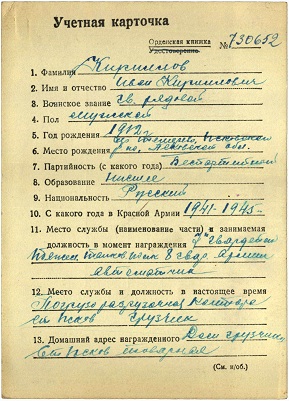 Учетная карточка
Орденская книжка
Удостоверение № 730652
1. Фамилия Кириллов
2. Имя и отчество Иван Кириллович
3. Воинское звание Гв. рядовой
4. Пол мужской
5. Год рождения 1912
6. Место рождения Псковской обл.
7. Партийность (с какого года) Беспартийный
8. Образование Низшее
9. Национальность Русский
10. С какого года в Красной Армии 1941-1945
11. Место службы (наименование части) и занимаемая
должность в момент награждения 7 Гвардейский
танков полк 8 гвар. Армии
автоматчик
12. Место службы и должность в настоящее время
Погрузо разгрузочная контора
ст Псков грузчик
13. Домашний адрес награжденного Дом грузчик
ст Псков товарная
(См. н/об.)